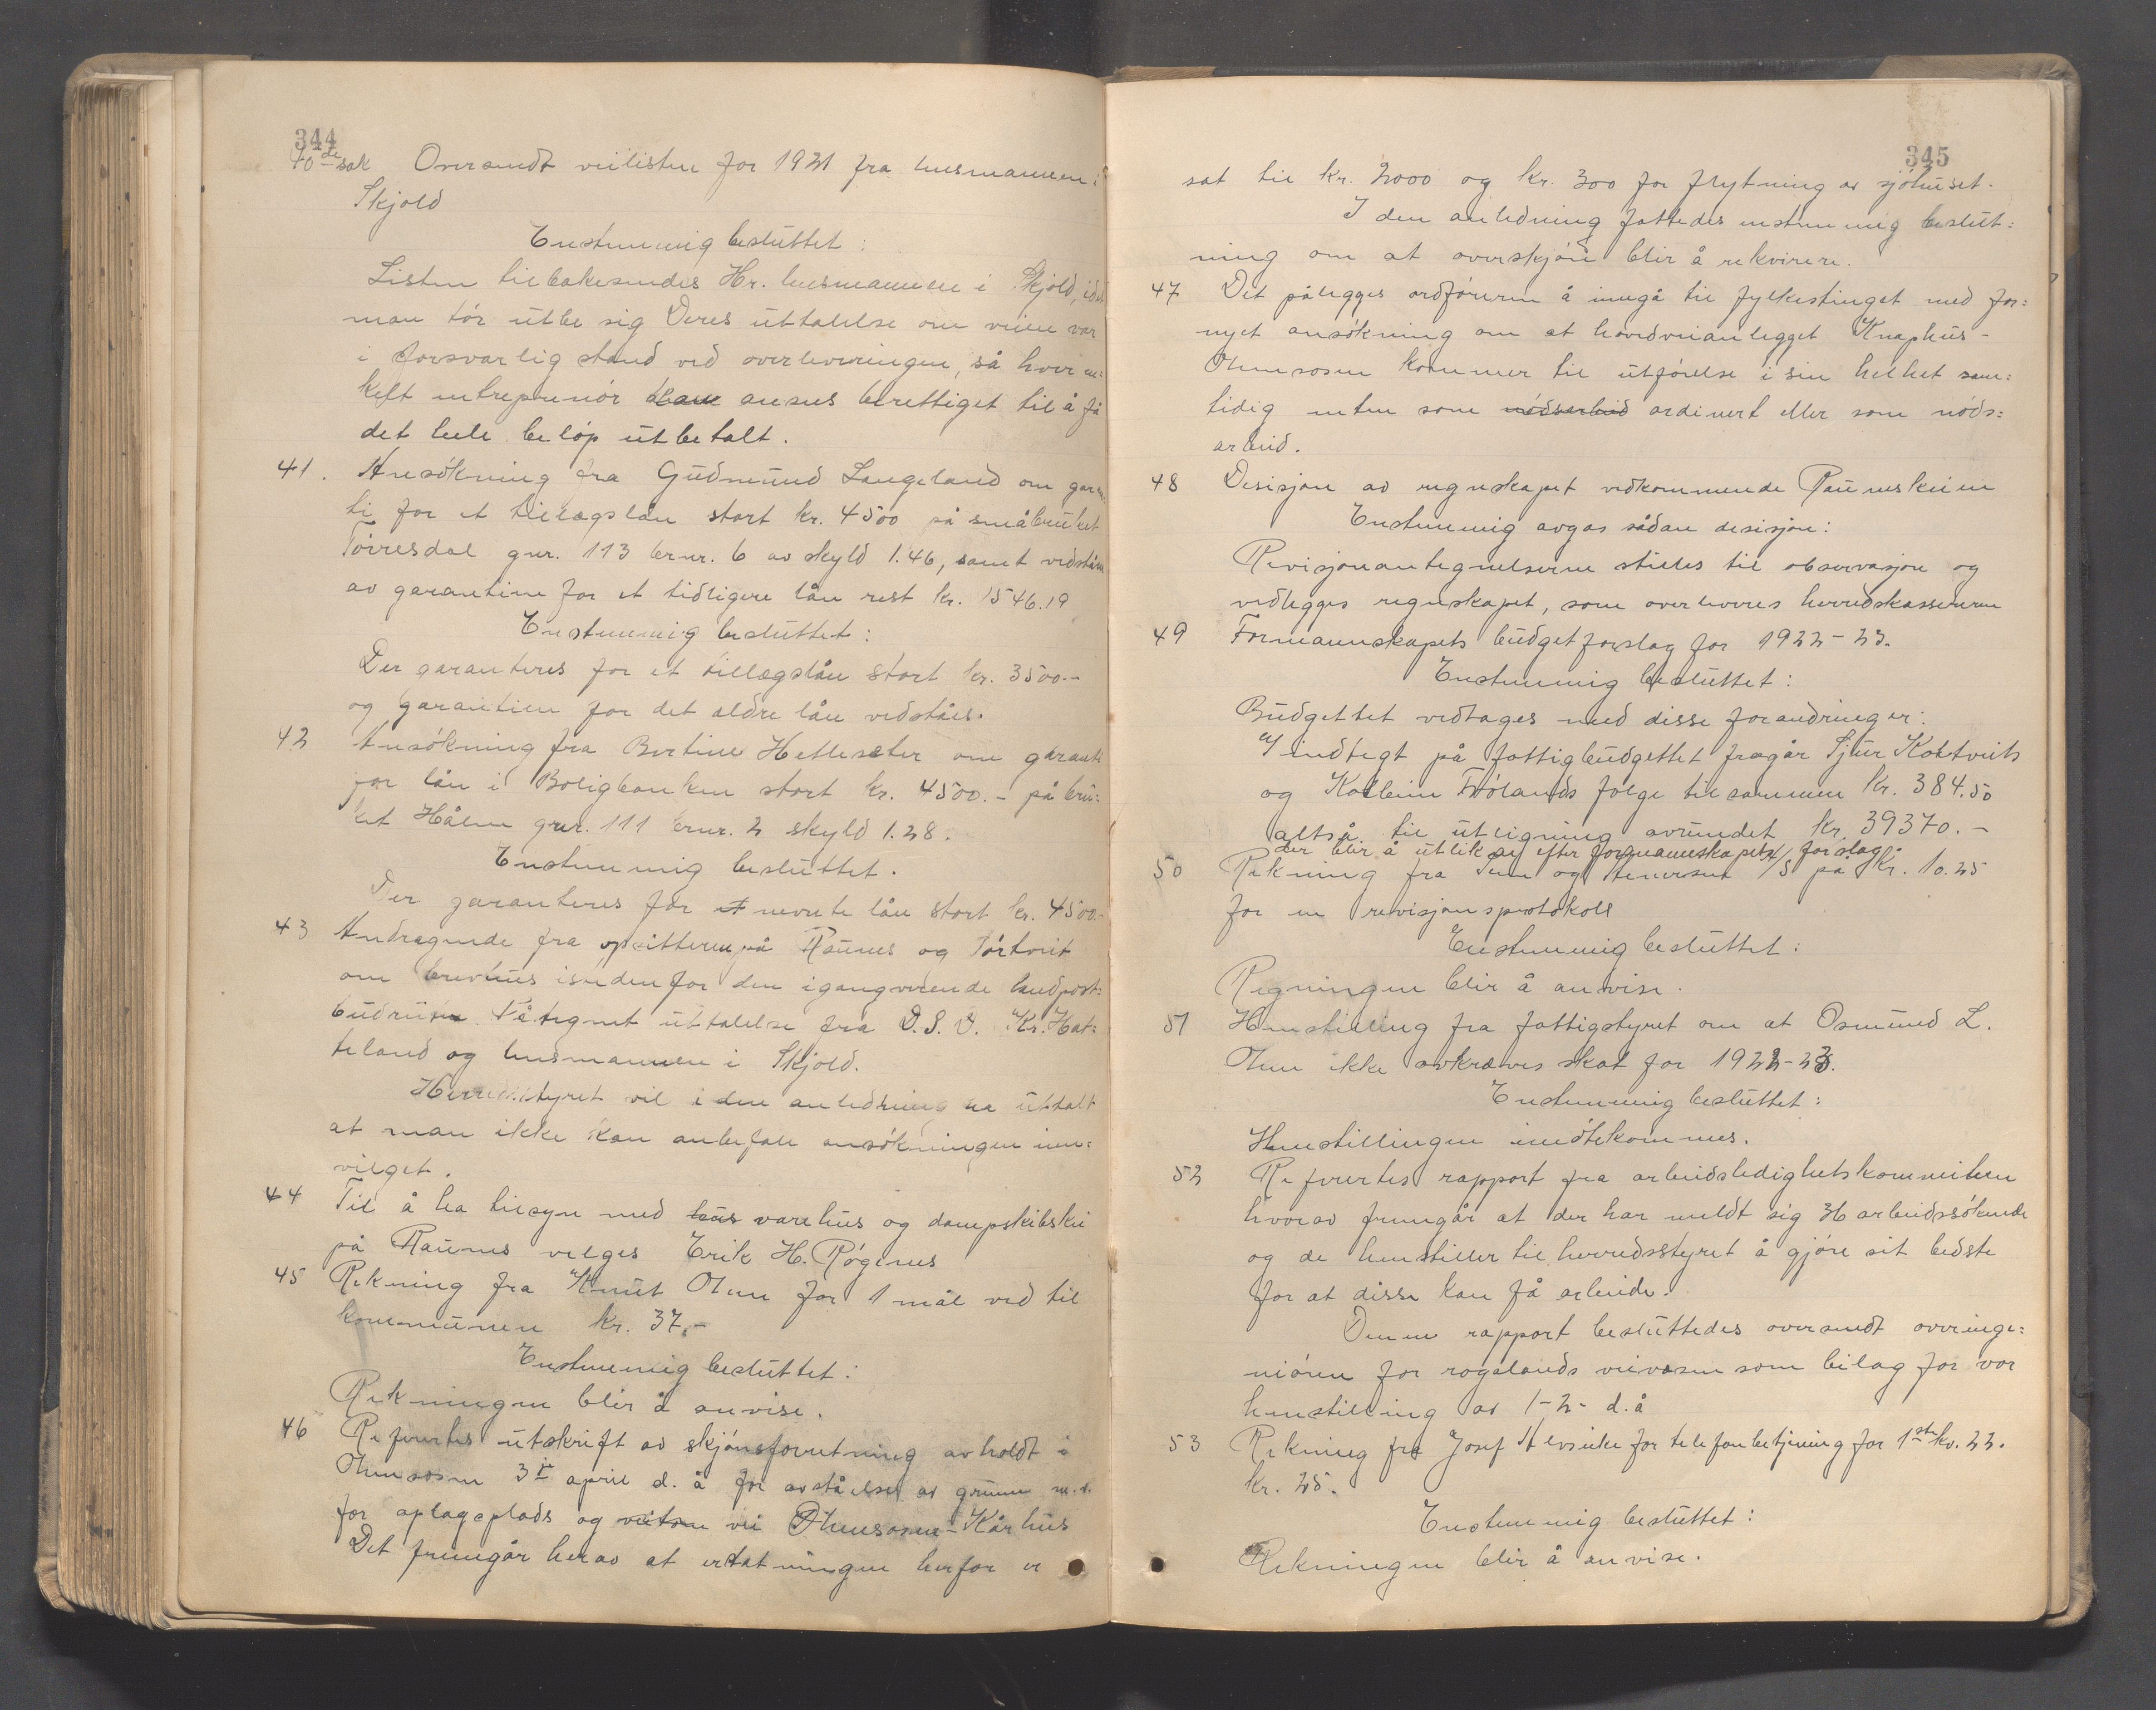 344
40de sak Oversendt veilisten for 1921 fra lensmannen i
Skjold
Enstemmig besluttet:
Listen tilbakesendes Hr. lensmannen i Skjold, idet
man tør utbe sig Deres uttalelse om veien var
i forsvarlig stand ved overleveringen, så hver en:
kelt entreprenør kan ansees berettiget til å få
det hele beløp utbetalt.
41. Ansøkning fra Gudmund Langeland om garan:
ti for et tillægslån stort kr. 4500 på småbruket
Tørresdal gnr. 113 brnr. 6 av skyld 1.46, samt vedståen
av garantien for et tidligere lån rest kr. 1546.19
Enstemmig besluttet:
Der garanteres for et tillægslån stort kr. 3500.-
og garantien for det ældre lån vedståes.
42 Ansøkning fra Bertine Hetlesæter om garanti
for lån i Boligbanken stort kr. 4500.- på bru:
ket Hålen gnr. 111 brnr. 2 skyld 1.28.
Enstemmig besluttet.
Der garanteres for et nevnte lån stort kr. 4500.-
43 Andragende fra opsitterne på Raunes og Tørtveit
om brevhus isedenfor den igangverende landpost:
budrute. Påtegnet uttalelse fra D.S.D. Kr. Hat:
teland og lensmannen i Skjold.
Herredstyret vil i den anledning ha uttalt
at man ikke kan anbefale ansøkningen inn:
vilget.
44 Til å ha tilsyn med hus varehus og dampskibskai
på Raunes velges Erik H. Røgenes
45 Rekning fra Knut Ølen for 1 mål ved til
kommunen kr. 37.-
Enstemmig besluttet:
Rekningen blir å anvise.
46 Refertes utskrift av skjønsforretning avholdt i
Ølensosen 3je april d. å for avståelse av grunn m.v.
for oplagsplads og veitom vei Ølensosen - Kårhus
Det fremgår herav at erstatningen herfor er
345
sat til kr. 2000 og kr. 300 for flytning av sjøhuset.
I den anledning fattedes enstemmig beslut:
ning om at overskjøn blir å rekvirere.
47 Det pålegges ordføreren å inngå til fylkestinget med for:
nyet ansøkning om at hovedveianlegget Knaphus -
Ølensosen kommer til utførelse i sin helhet sam:
tidig enten som nødsarbeid ordinert eller som nøds:
arbeid.
48 Desisjon av regnskapet vedkommende Rauneskaien
Enstemmig avgas sådan desisjon:
Revisjonsantegnelserne stilles til observasjon og
vedlegges regnskapet, som overleveres herredskassereren
49 Formannskapets budgetforslag for 1922-23.
Enstemmig besluttet:
Budgettet vedtages med disse forandringer:
a/ indtegt på fattigbudgettet fragår Sjur Koktveits
og Kolbein Frølands følge tilsammen kr. 384.50
altså til utligning avrundet kr. 39370.-
der blir å utlikne efter formannskapets forslag
50 Rekning fra Sem og Stenersen A/S på kr. 10.25
for en revisjonsprotokoll
Enstemmig besluttet:
Regningen blir å anvise.
51 Henstilling fra fattigstyret om at Osmund L.
Ølen ikke avkræves skat for 1922-23.
Enstemmig besluttet:
Henstillingen imøtekommes.
52 Refertes rapport fra arbeidsledighetskommiteen
hvorav fremgår at der har meldt sig 36 arbeidssøkende
og de henstiller til herredsstyret å gjøre sit bedste
for at disse kan få arbeide.
Denne rapport besluttedes oversendt overinge:
niøren for rogalands veivesen som bilag for vor
henstilling av 1-2- d.å
53 Rekning fra Josef Alvsvike for telefonbetjening for 1ste kv. 22.
kr. 25.
Enstemmig besluttet:
Rekningen blir å anvise.